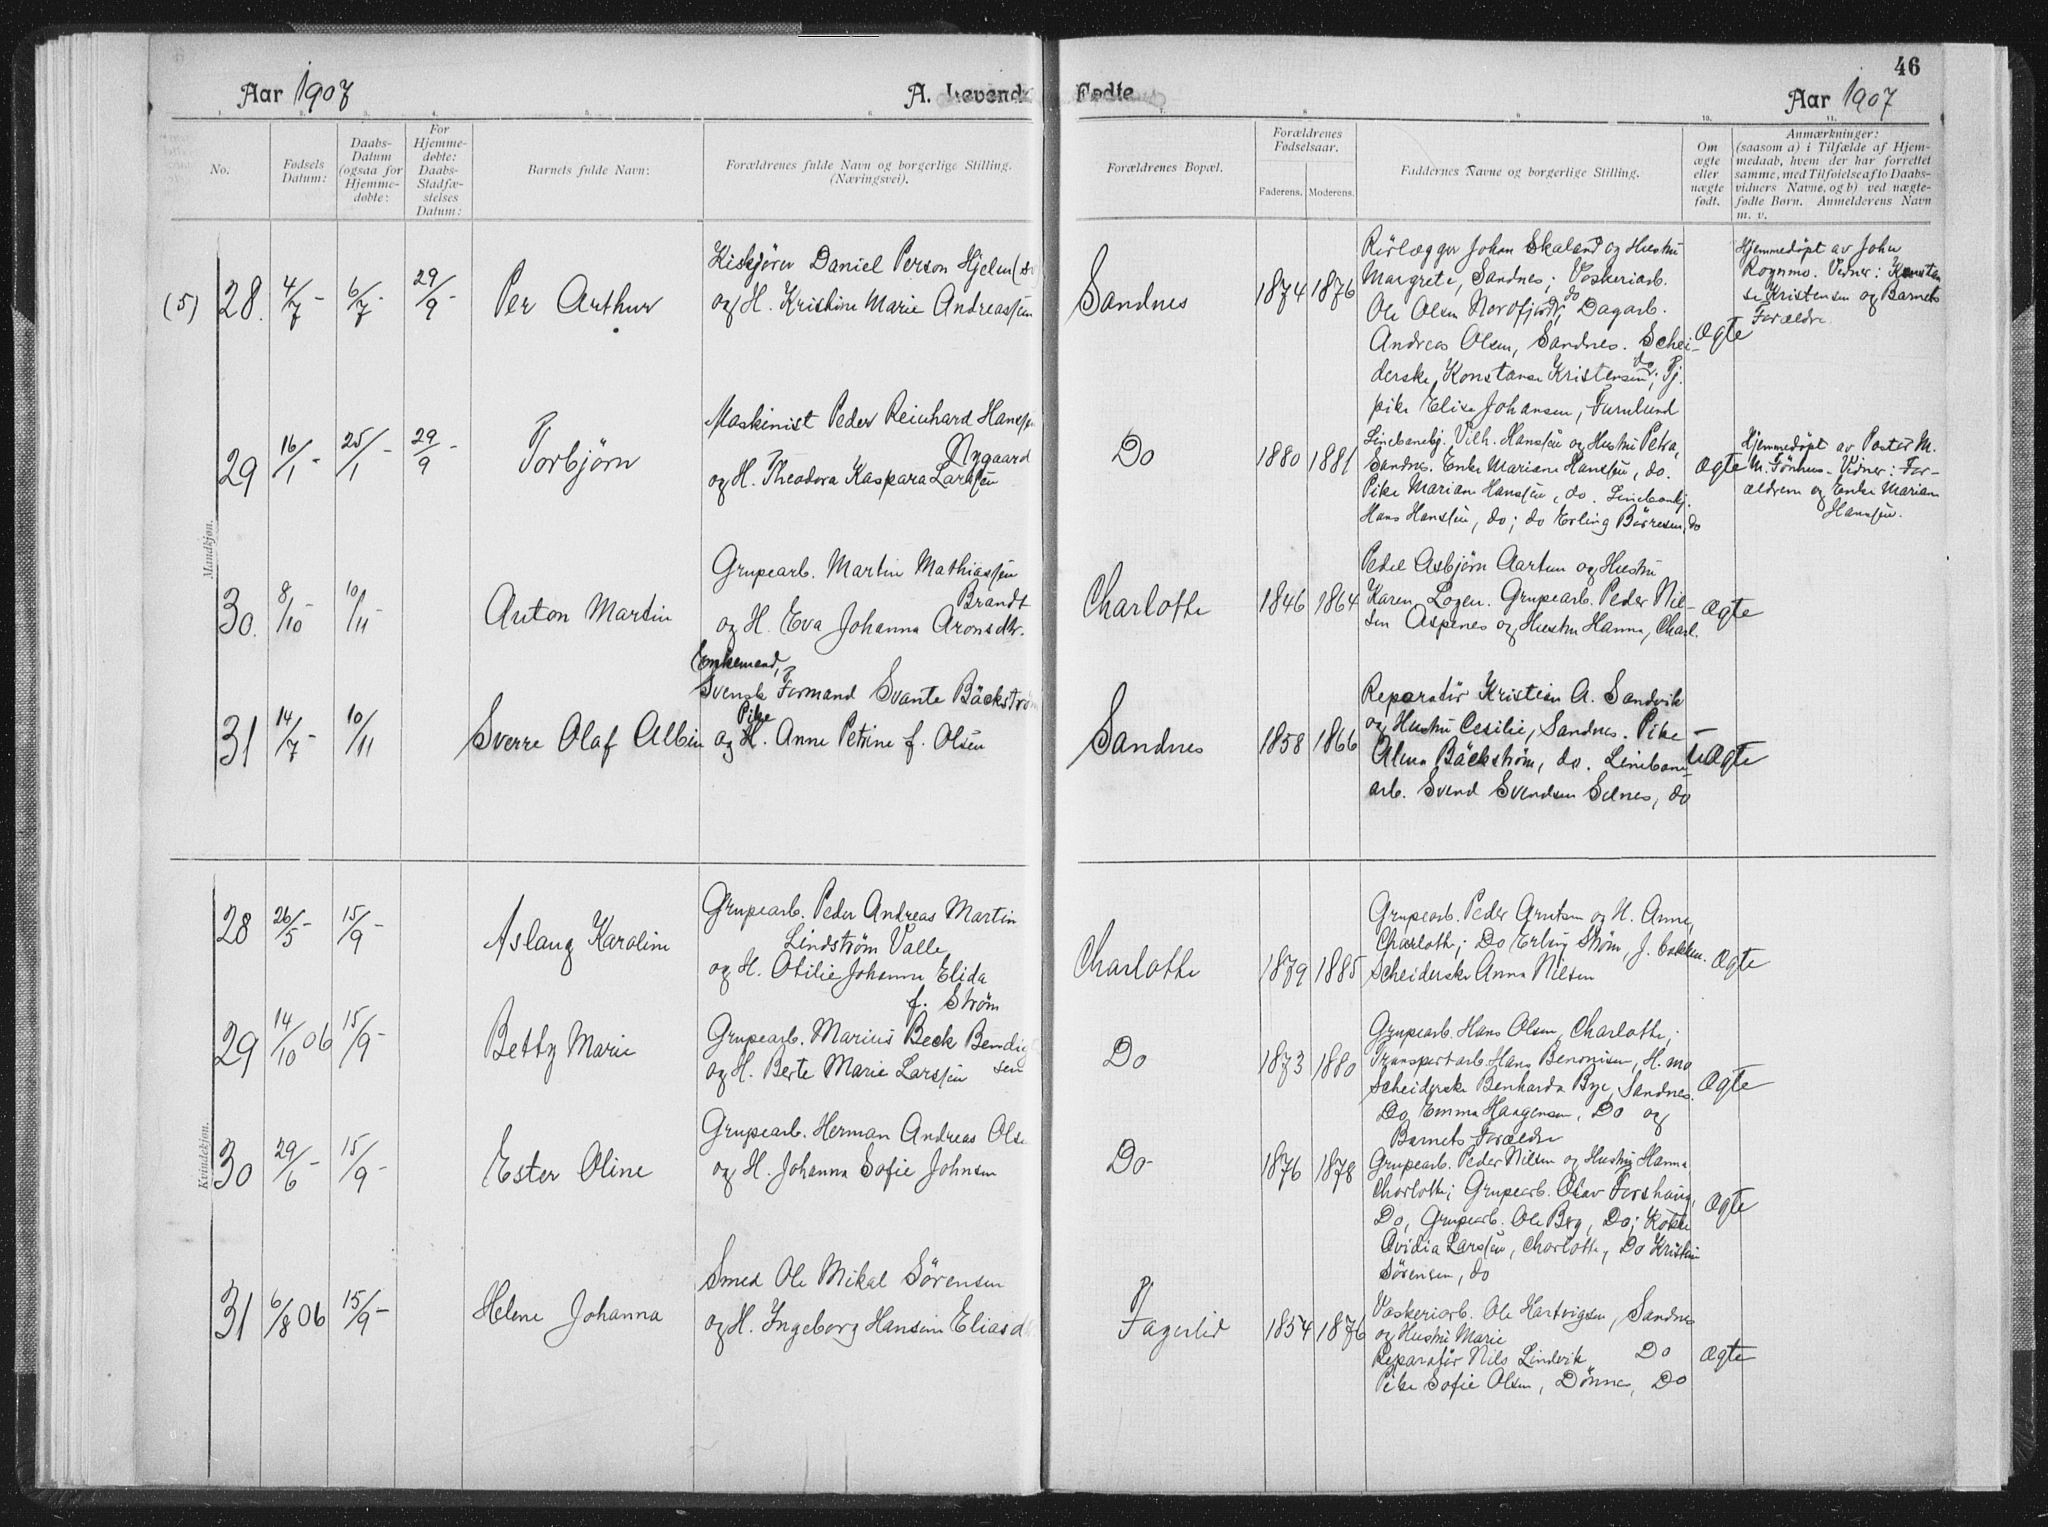 46
Aar 1907
A. Levend
Fødte
Aar 1907
1.
2.
3.
4.
5.
6.
7.
8.
9.
10.
11.
No.
Fødsels
Datum:
Daabs-
Datum
(ogsaa for
Hjemme-
døbte:
For
Hjemme-
døbte:
Daabs-
Stadfæ-
stelses
Datum:
Barnets fulde Navn:
Forældrenes fulde Navn og borgerlige Stilling.
(Næringsvei).
Forældrenes Bopæl.
Forældrenes
Fødselsaar.
Faderens.
Moderens.
Faddernes Navne og borgerlige Stilling.
Om
ægte
eller
nægte
født.
Anmærkninger:
(saasom a) i Tilfælde af Hjem-
medaab, hvem der har forrettet
samme, med Tilføielse af to Daabs-
vidners Navne, og b) ved nægte-
fødte Børn. Anmelderens Navn
m. v.
Mandkjøn.
(5) 28. 4/7 - 6/7 - 29/9 -
Per Arthur
Kiskjører Daniel Person Hjelm (sv
og H. Kristine Marie Andreassen
Sandnes
1874 1876
Rørlægger Johan Skaland og Hustru
Margrete, Sandnes; Vaskeriarb.
Ole Olsen Nordfjord, do, Dagarb.
Andreas Olsen, Sandnes. Schei-
derske, Konstanse Kristensen, do; Tj.
pike Elise Johansen, Furulund
Ægte
Hjemmedøpt av John
Rognmo. Vidner: Konstan
se Kristensen og Barnets
Forældre.
29 16/1 - 25/1 - 29/9 -
Torbjørn
Maskinist Peder Reinhard Hanssen
Nygaard
og H. Theodora Kaspara Larssen
Do
1880 1881
Linebanebj. Vilh. Hanssen og Hustru Petra,
Sandnes. Enke Mariane Hanssen, do.
Pike Mariane Hanssen, do. Linebanebj.
Hans Hanssen, do; do Erling Børresen, do
Ægte
Hjemmedøpt av Pastor M.
M. Tönnes. Vidner: For-
ældrene og Enke Mariane
Hanssen.
30. 8/10 - 10/11
Anton Martin
Grupearb. Martin Mathiassen
Brandt
og H. Eva Johanna Aronsdtr.
Charlotte
1846 1864
Pedel Asbjørn Aartun og Hustru
Karen, Logen. Grupearb. Peder Nil-
sen Aspenes og Hustru Hanna, Charl.
Ægte
31 14/7 - 10/11
Sverre Olaf Albin
Enkemand,
Svensk Formand Svante Bäckström
og Pike H. Anne Petrine f. Olsen
Sandnes
1858 1866
Reparatør Kristian A. Sandvik
og Hustru Cesilie, Sandnes. Pike
Alma Bäckstrøm, do. Linebane-
arb. Svend Svendsen Selnes, do
uægte
Kvindekjøn.
28 26/5 - 15/9 -
Aslaug Karoline
Grupearb. Peder Andreas Martin
Lindstrøm Valle
og H. Otilie Johanne Elida
f. Strøm
Charlotte
1879 1885
Grupearb. Peder Arntsen og H. Anne,
Charlotte; Do Erling Strøm, J. bakken.
Scheiderske Anna Nilsen
Ægte
29 14/10 06 15/9 -
Betty Marie
Grupearb. Marius Beck Bendigt
sen
og H. Berte Marie Larssen
Do
1873 1880
Grupearb. Hans Olsen, Charlotte;
Transportarb. Hans Benonisen, H. mo
Scheiderske Benharda Bye, Sandnes.
Do, Emma Haagensen, Do og
Barnets Forældre
Ægte
30 29/6 - 15/9 -
Ester Oline
Grupearb. Herman Andreas Olse
og H. Johanna Sofie Johnsen
Do -
1876 1878
Grupearb. Peder Nilsen og Hustru Hanna
Charlotte; Grupearb. Olav Forshaug,
Do, Grupearb. Ole Berg, Do; Kokke
Ovidia Larssen, Charlotte, Do Kristine
Sørensen, do
Ægte
31 6/8 06 15/9 -
Helene Johanna
Smed Ole Mikal Sørensen
og H. Ingeborg Hansine Eliasd
Fagerlid
1854 1876
Vaskeriarb. Ole Hartvigsen, Sandnes
og Hustru Marie
Reparatør Nils Lindvik Do
Pike Sofie Olsen, Dönnes, Do
Ægte